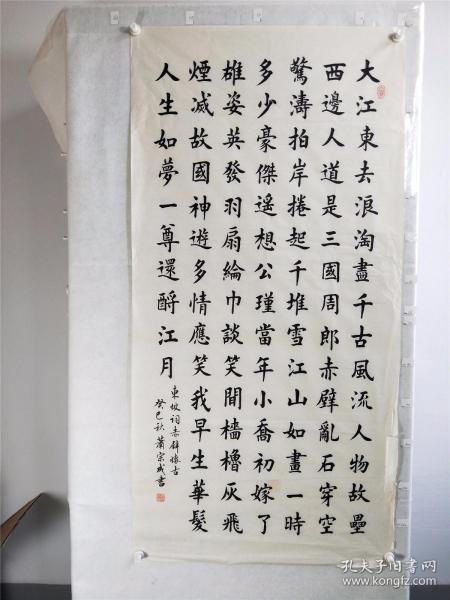 大江東去浪淘盡千古風流人物故壘
西邊人道是三國周郎赤壁亂石穿空
驚濤拍岸捲起千堆雪江山如畫一時
多少豪傑遥想公瑾當年小喬初嫁了
雄姿英發羽扇綸巾談笑間檣櫓灰飛
煙滅故國神遊多情應笑我早生華髮
人生如夢一尊還酹江月
東坡詞赤壁懷古
癸巳秋蕭宗成書
孔夫子旧书网
www.kongfz.com